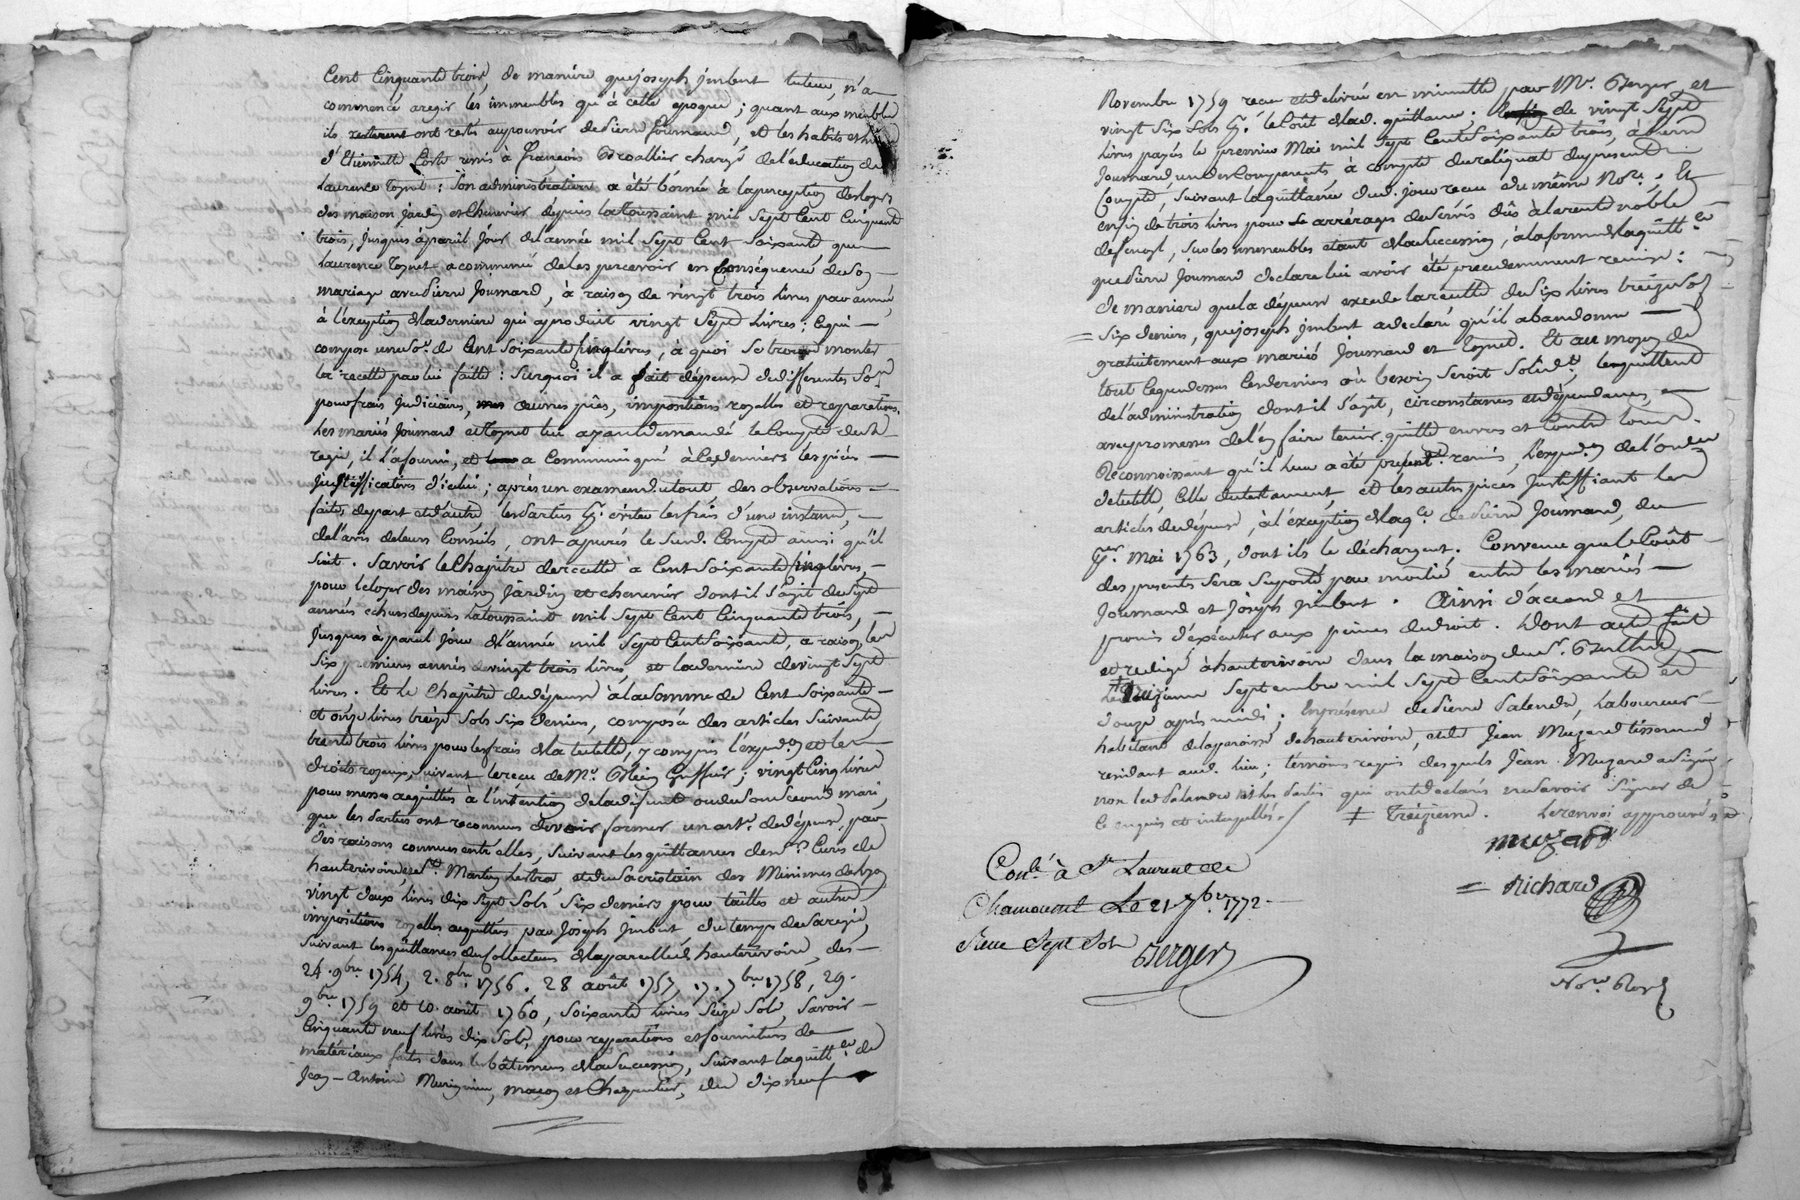 Cent Cinquante trois, de maniere que joseph jmbert tuteur, n'a
commencé a regir les immeubles qu'à cette epoque; quant aux meubles
ils ont restés au pouvoir de pierre Joumard, et les habits et
d'Etiennette Coste remis à françois Broallier chargé de l'education de
Laurence Tognet: Son administration a été bornée à la perception des loyers
des maison, jardin et chenevier depuis la toussaint mil sept Cent Cinquante
trois, jusques à pareil jour de l'année mil sept Cent soixante que
Laurence Tognet a commencé de les percevoir en Conséquence de son
mariage avec pierre Joumard, à raison de vingt trois livres par année,
à l'exception de la derniere qui a produit vingt sept livres; Ce qui
compose une so.e de Cent soixante cinq livres, à quoi se trouve monter
la recette par lui faitte: Surquoi il a fait dépense de differentes so.es
pour frais judiciaires, œuvres pies, impositions royalles et reparations.
Les mariés Joumard et Tognet lui ayant demandé le Compte de sa
regie, il l'a fourni, et a Communiqué à Ces derniers les pieces
justifficatives d'icelui; après un examen du tout des observations
faites de part et d'autre les parties p.r eviter les frais d'une instance,
de l'avis de leurs Conseils, ont apurés le susd. Compte ainsi qu'il
suit. Savoir le Chapitre de recette à Cent soixante cinq livres,
pour le loyer des maison, jardin et chenevier dont il s'agit de sept
années échues depuis la toussaint mil sept Cent Cinquante trois,
jusques à pareil jour de l'année mil sept Cent soixante, a raison les
six premieres années de vingt trois livres, et la derniere de vingt sept
livres. Et le Chapitre de dépense à la somme de Cent soixante
et onze livres treize sols six deniers, composée des articles suivants
trente trois livres pour les frais de la tutelle, y compris l'exped.on et les
droits royaux, suivant le recu de M.e Greffier; vingt Cinq livres
pour messes acquittées à l'intention de la defunte ou de son second mari,
que les parties ont reconnues devoir former un art.e de dépense, par
des raisons connues entr'elles, suivant les quittances de s.rs Curés de
hauterivoire, et de s.t Martin Lestra et du Sacristain des Minimes de
vingt deux livres dix sept sols six deniers pour tailles et autres
impositions royalles acquittées par Joseph Jmbert, du temps de sa regie,
suivant les quittances du Collecteur de la parcelle d'hauterivoire, des
24. 9bre 1754, 2. 8bre 1756. 28 août 1757, 17. 7bre 1758, 29.
9bre 1759 et 10 août 1760, soixante livres seize sols, savoir
Cinquante neuf livres dix sols, pour reparations et fournitures de
matériaux faites dans les bâtiments de la succession, suivant la quitt.ce de
Jean-Antoine, macon et Charpentier, du dix neuf
Novembre 1759 recue et delivrée en minutte par M.e Berger, et
vingt six sols p.r le Coût de lad. quittance. de vingt sept
livres payés le premier Mai mil sept Cent soixante trois, à pierre
Joumard un des Comparants, à compte du reliquat du present
Compte, suivant la quittance dud. jour recue du même No.re; Et
enfin de trois livres pour Le arrérages de servis dûs à la rente noble
de, sur les immeubles etant de la succession, à la forme de la quitt.ce
que pierre Joumard declare lui avoir été precedemment remise:
De maniere que la dépense excede la recette de six livres treize sols
six deniers, que joseph jmbert a declaré qu'il abandonne
gratuitement aux mariés Joumard et Tognet. Et au moyen de
tout Ce que dessus Ces derniers où besoin seroit solid.t, le quittent
de l'administration dont il s'agit, circonstances et dépendances,
avec promesses de l'en faire tenir quitte envers et contre tous.
Reconnoissant qu'il leur a été present.t remis, l'exped.on de l'
de tutelle Celle du testament, et les autres pieces justiffiant les
articles de dépense, à l'exception de la q.ce de pierre Joumard, du
p.er Mai 1763, dont ils le déchargent. Convenu que le Coût
des presentes sera suporté par moitié entre les mariés
Joumard et joseph jmbert. Ainsi d'accord et
promis d'exécuter aux peines de droit. Dont acte fait
et redigé à hauterivoire dans la maison du s.r
Septembre mil sept Cent soixante et
douze après midi; En présence de pierre Salandre, Laboureur
habitant de la paroisse de hauterivoire, et de Jean Muzard tisserand
residant aud. lieu; temoins requis desquels Jean Muzard a signé
non led Salandre ni les parties qui ont declarés ne savoir signer de
ce enquis et interpellés./ ‡ Treizieme. Le renvoi approuvé
muzard
Con.lé à S.t Laurent de
Chamousset Le 21. 7bre 1772.
Recu Sept Sols
Berger
= Richard
No.re Royl